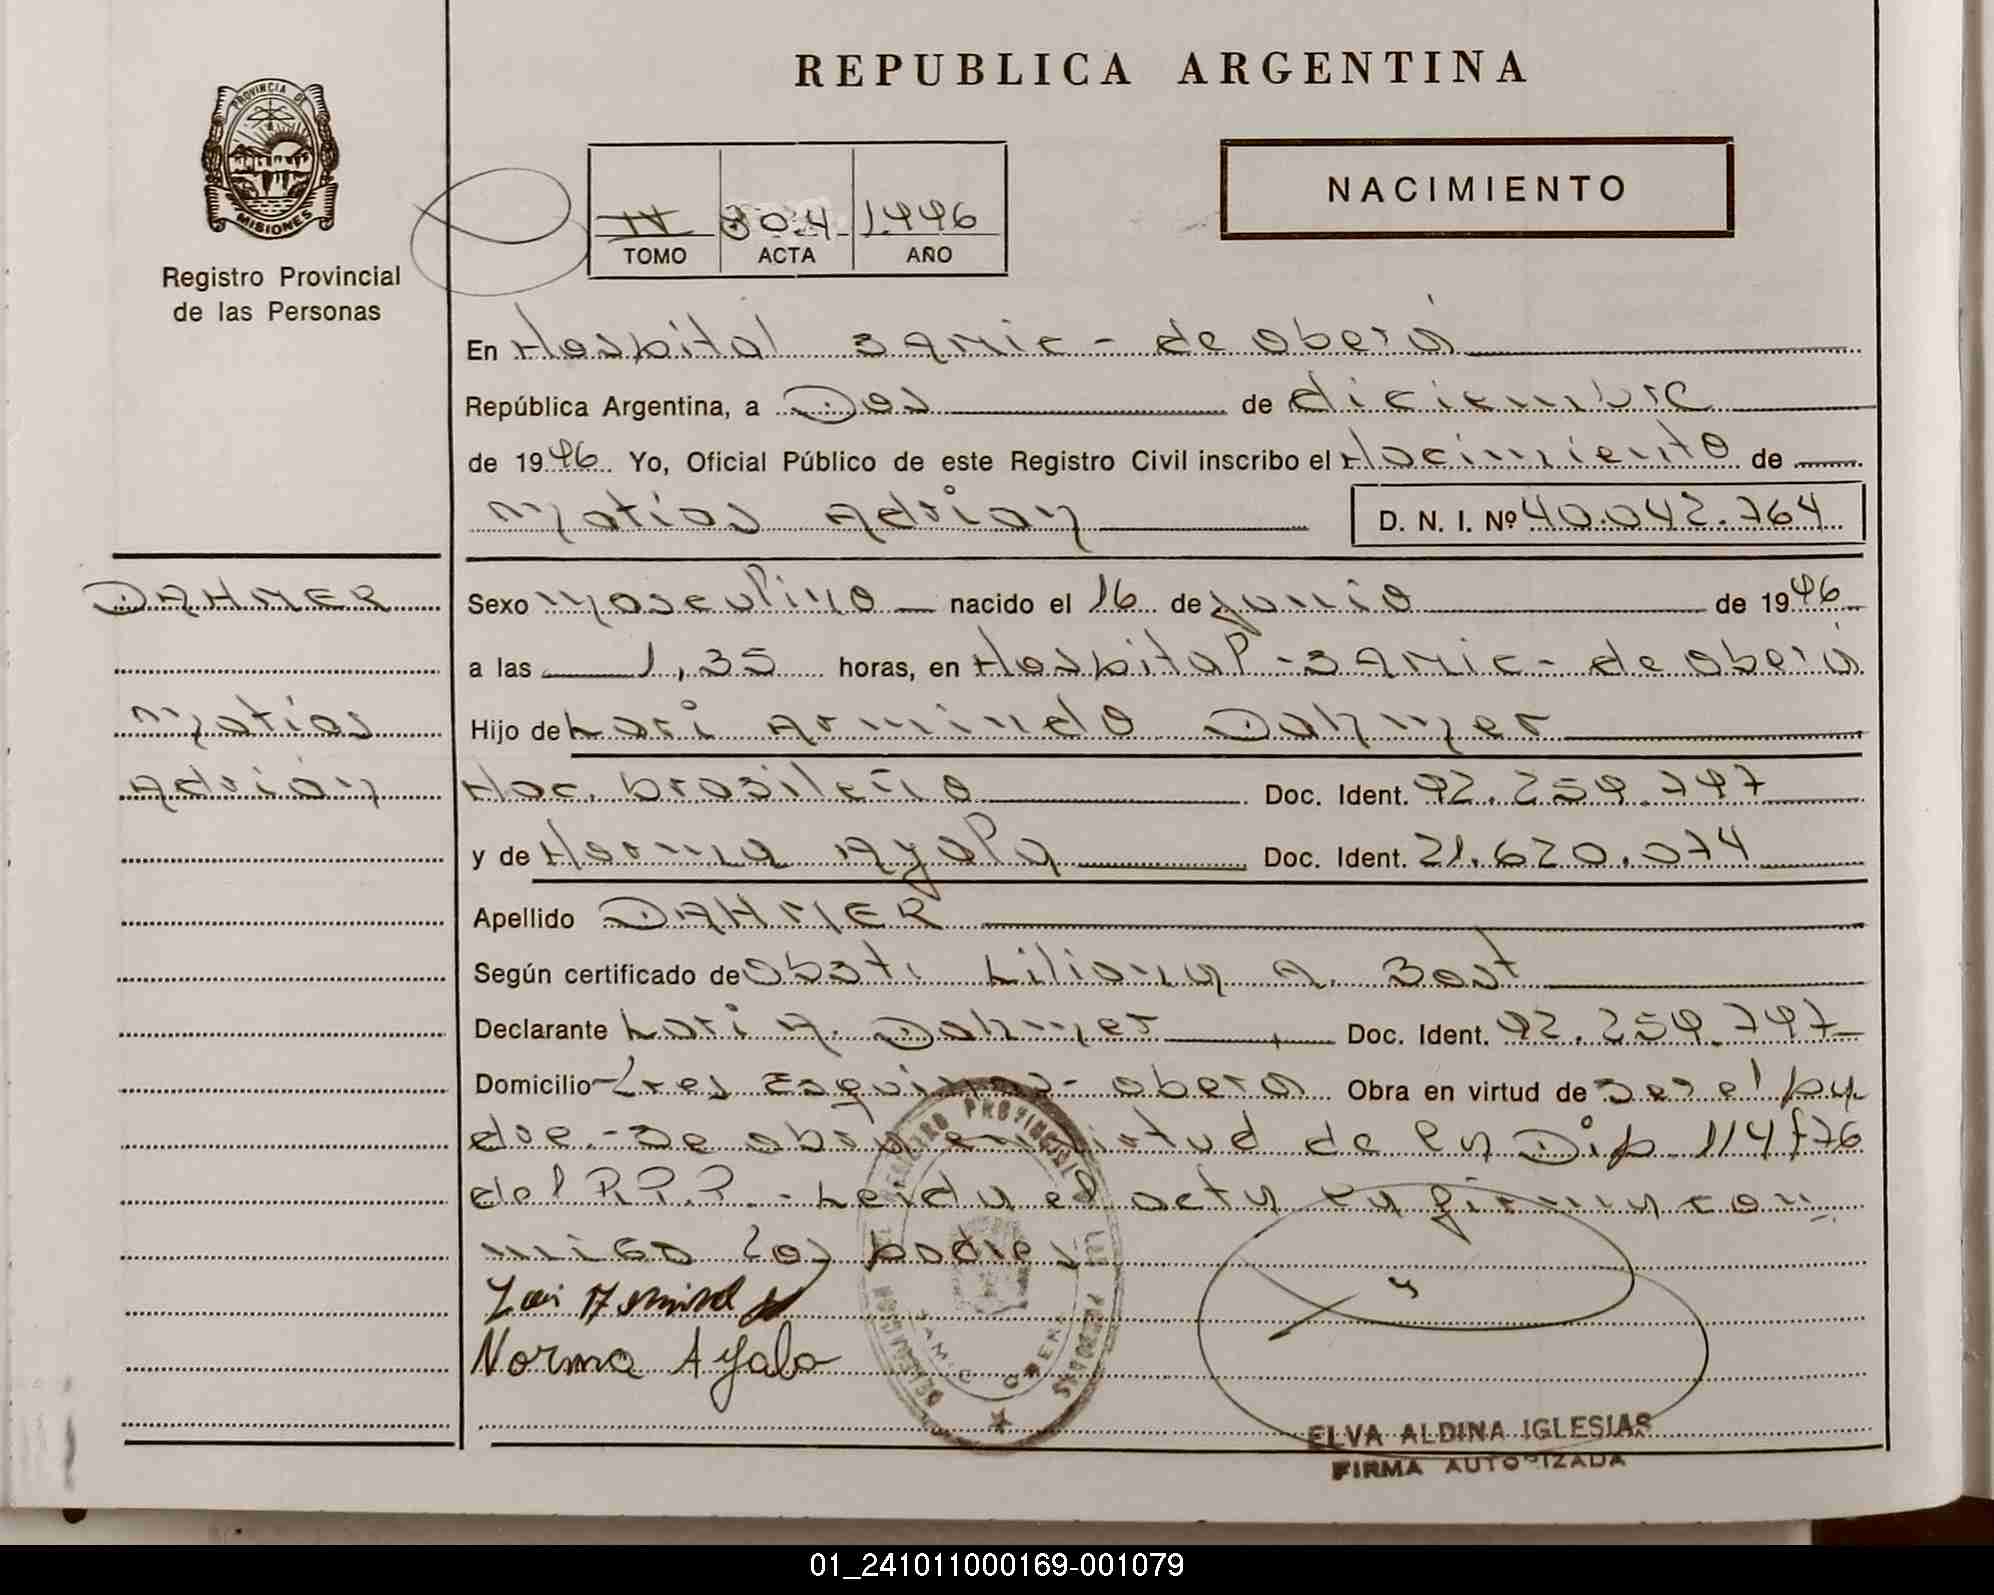 REPUBLICA ARGENTINA
PROVINCIA DE
MISIONES
Registro Provincial
de las Personas
IV 804 1996
TOMO ACTA AÑO
NACIMIENTO
En Hospital SAMIC - de oberá
República Argentina, a Dos de diciembre
de 1996 Yo, Oficial Público de este Registro Civil inscribo el Nacimiento de
Matías Adrián D. N. I. Nº 40.042.764
DAHMER
Matías
Adrián
Sexo Masculino nacido el 16 de junio de 1996
a las 1,35 horas, en Hospital - SAMIC - de oberá
Hijo de Lari Armindo Dahmer
Nac. brasileño Doc. Ident. 92.259.797
y de Norma Ayala Doc. Ident. 21.620.074
Apellido DAHMER
Según certificado de obst. Liliana A. Bost
Declarante Lari A. Dahmer Doc. Ident. 92.259.797
Domicilio Tres Esquinas - obera Obra en virtud de ser el pa-
dre.- Se obra en virtud de la Dip 114/76
del R.P.P. - Leida el acta la firman con-
migo los padres
Lari Armind
Norma Ayala
REGISTRO PROVINCIAL DE LAS PERSONAS
DELEGACION
SAMIC OBERA
ELVA ALDINA IGLESIAS
FIRMA AUTORIZADA
01_241011000169-001079